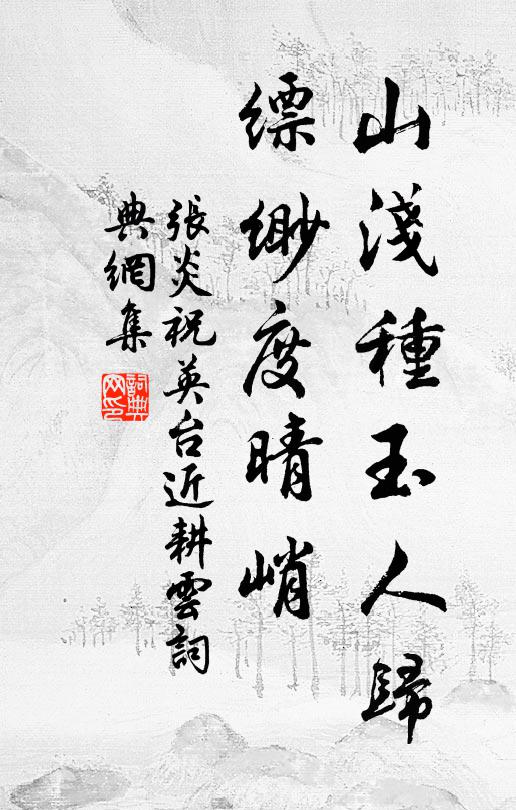 山淺種玉人歸
縹缈度晴峭
張炎祝英台近耕雲詞
典網集
詞典網印